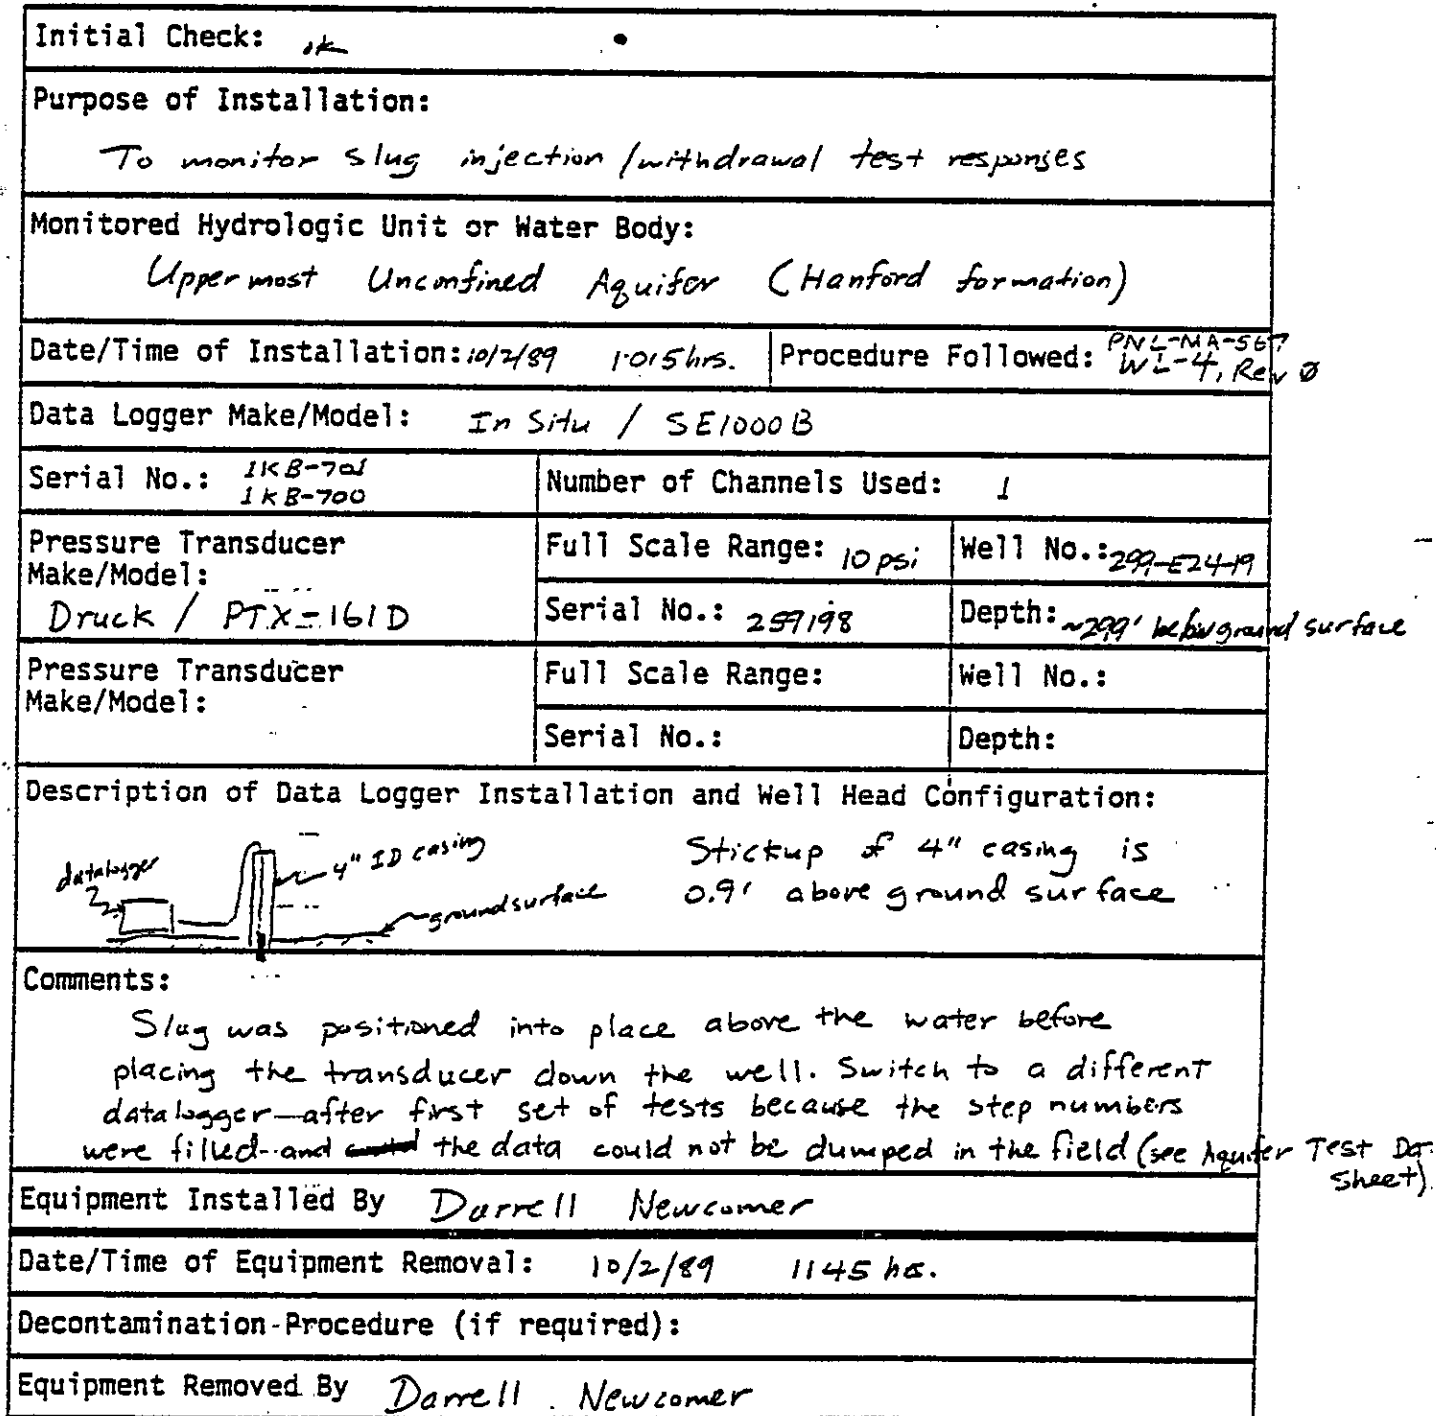 Initial Check: ok
Purpose of Installation:
To monitor slug injection/withdrawal test responses
Monitored Hydrologic Unit or Water Body:
Uppermost Unconfined Aquifer (Hanford formation)
Date/Time of Installation: 10/2/89 1015 hrs. Procedure Followed: PNL-MA-567
WL-4, Rev 0
Data Logger Make/Model: In Situ / SE1000B
Serial No.: 1KB-701
1KB-700
Number of Channels Used: 1
Pressure Transducer
Make/Model:
Druck / PTX-161D
Full Scale Range: 10 psi
Well No.: 299-E24-19
Serial No.: 259198
Depth: ~299' below ground surface
Pressure Transducer
Make/Model:
Full Scale Range:
Well No.:
Serial No.:
Depth:
Description of Data Logger Installation and Well Head Configuration:
datalogger
4" ID casing
ground surface
Stickup of 4" casing is
0.9' above ground surface
Comments:
Slug was positioned into place above the water before
placing the transducer down the well. Switch to a different
datalogger after first set of tests because the step numbers
were filled and the data could not be dumped in the field (see Aquifer Test Da
Sheet).
Equipment Installed By Darrell Newcomer
Date/Time of Equipment Removal: 10/2/89 1145 hrs.
Decontamination Procedure (if required):
Equipment Removed By Darrell Newcomer